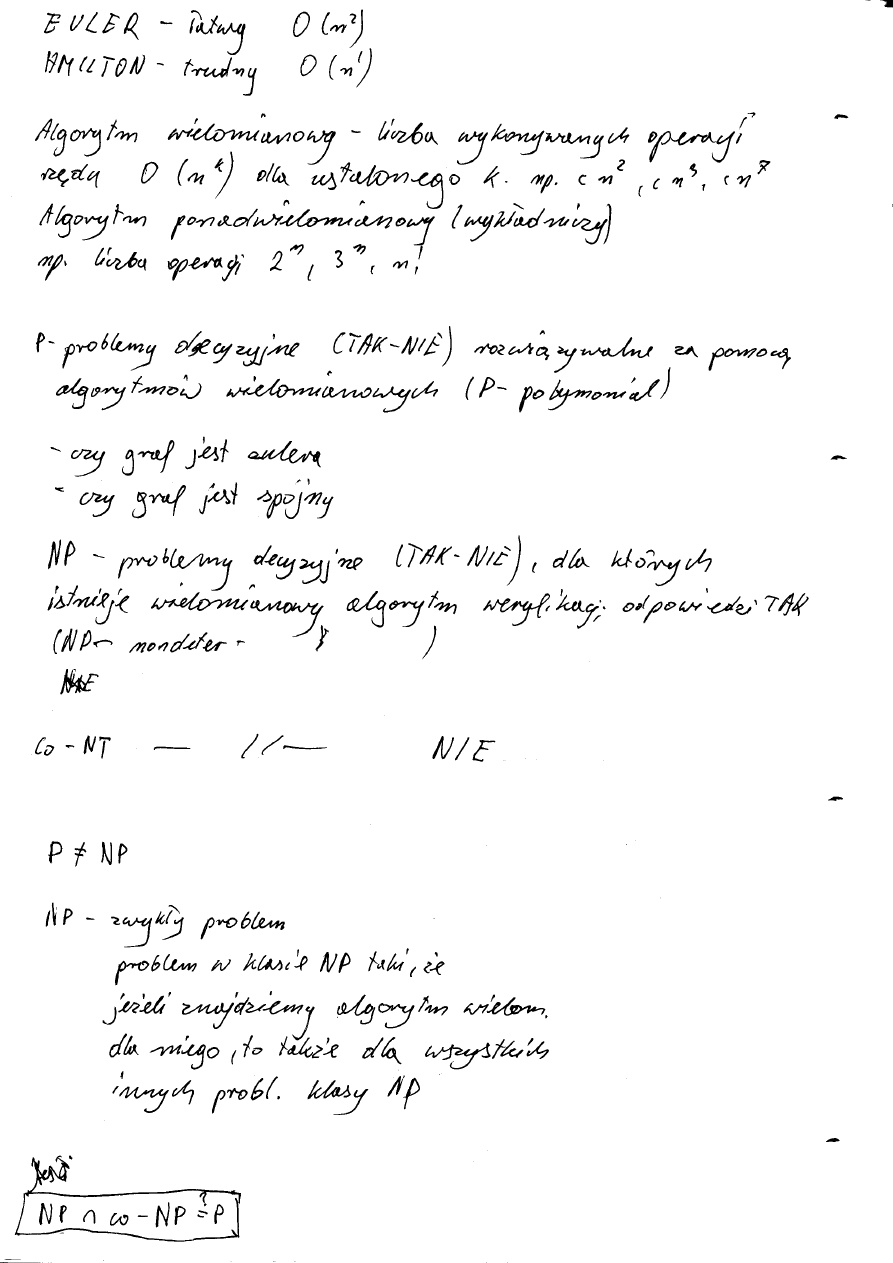 EULER - łatwy O(n²)
HAMILTON - trudny O(n!)
Algorytm wielomianowy - liczba wykonywanych operacji
rzędu O(n^k) dla ustalonego k. np. cn², cn³, cn⁷
Algorytm ponadwielomianowy (wykładniczy)
np. liczba operacji 2ⁿ, 3ⁿ, n!
P- problemy decyzyjne (TAK-NIE) rozwiązywalne za pomocą
algorytmów wielomianowych (P- polymonial)
- czy graf jest eulera
- czy graf jest spójny
NP - problemy decyzyjne (TAK-NIE), dla których
istnieje wielomianowy algorytm weryfikacji odpowiedzi TAK
(NP- nondeter - )
co-NT — //— NIE
P ≠ NP
NP - zwykły problem
problem w klasie NP taki, że
jeżeli znajdziemy algorytm wielom.
dla niego, to także dla wszystkich
innych probl. klasy NP
NP ∩ co-NP ≟ P